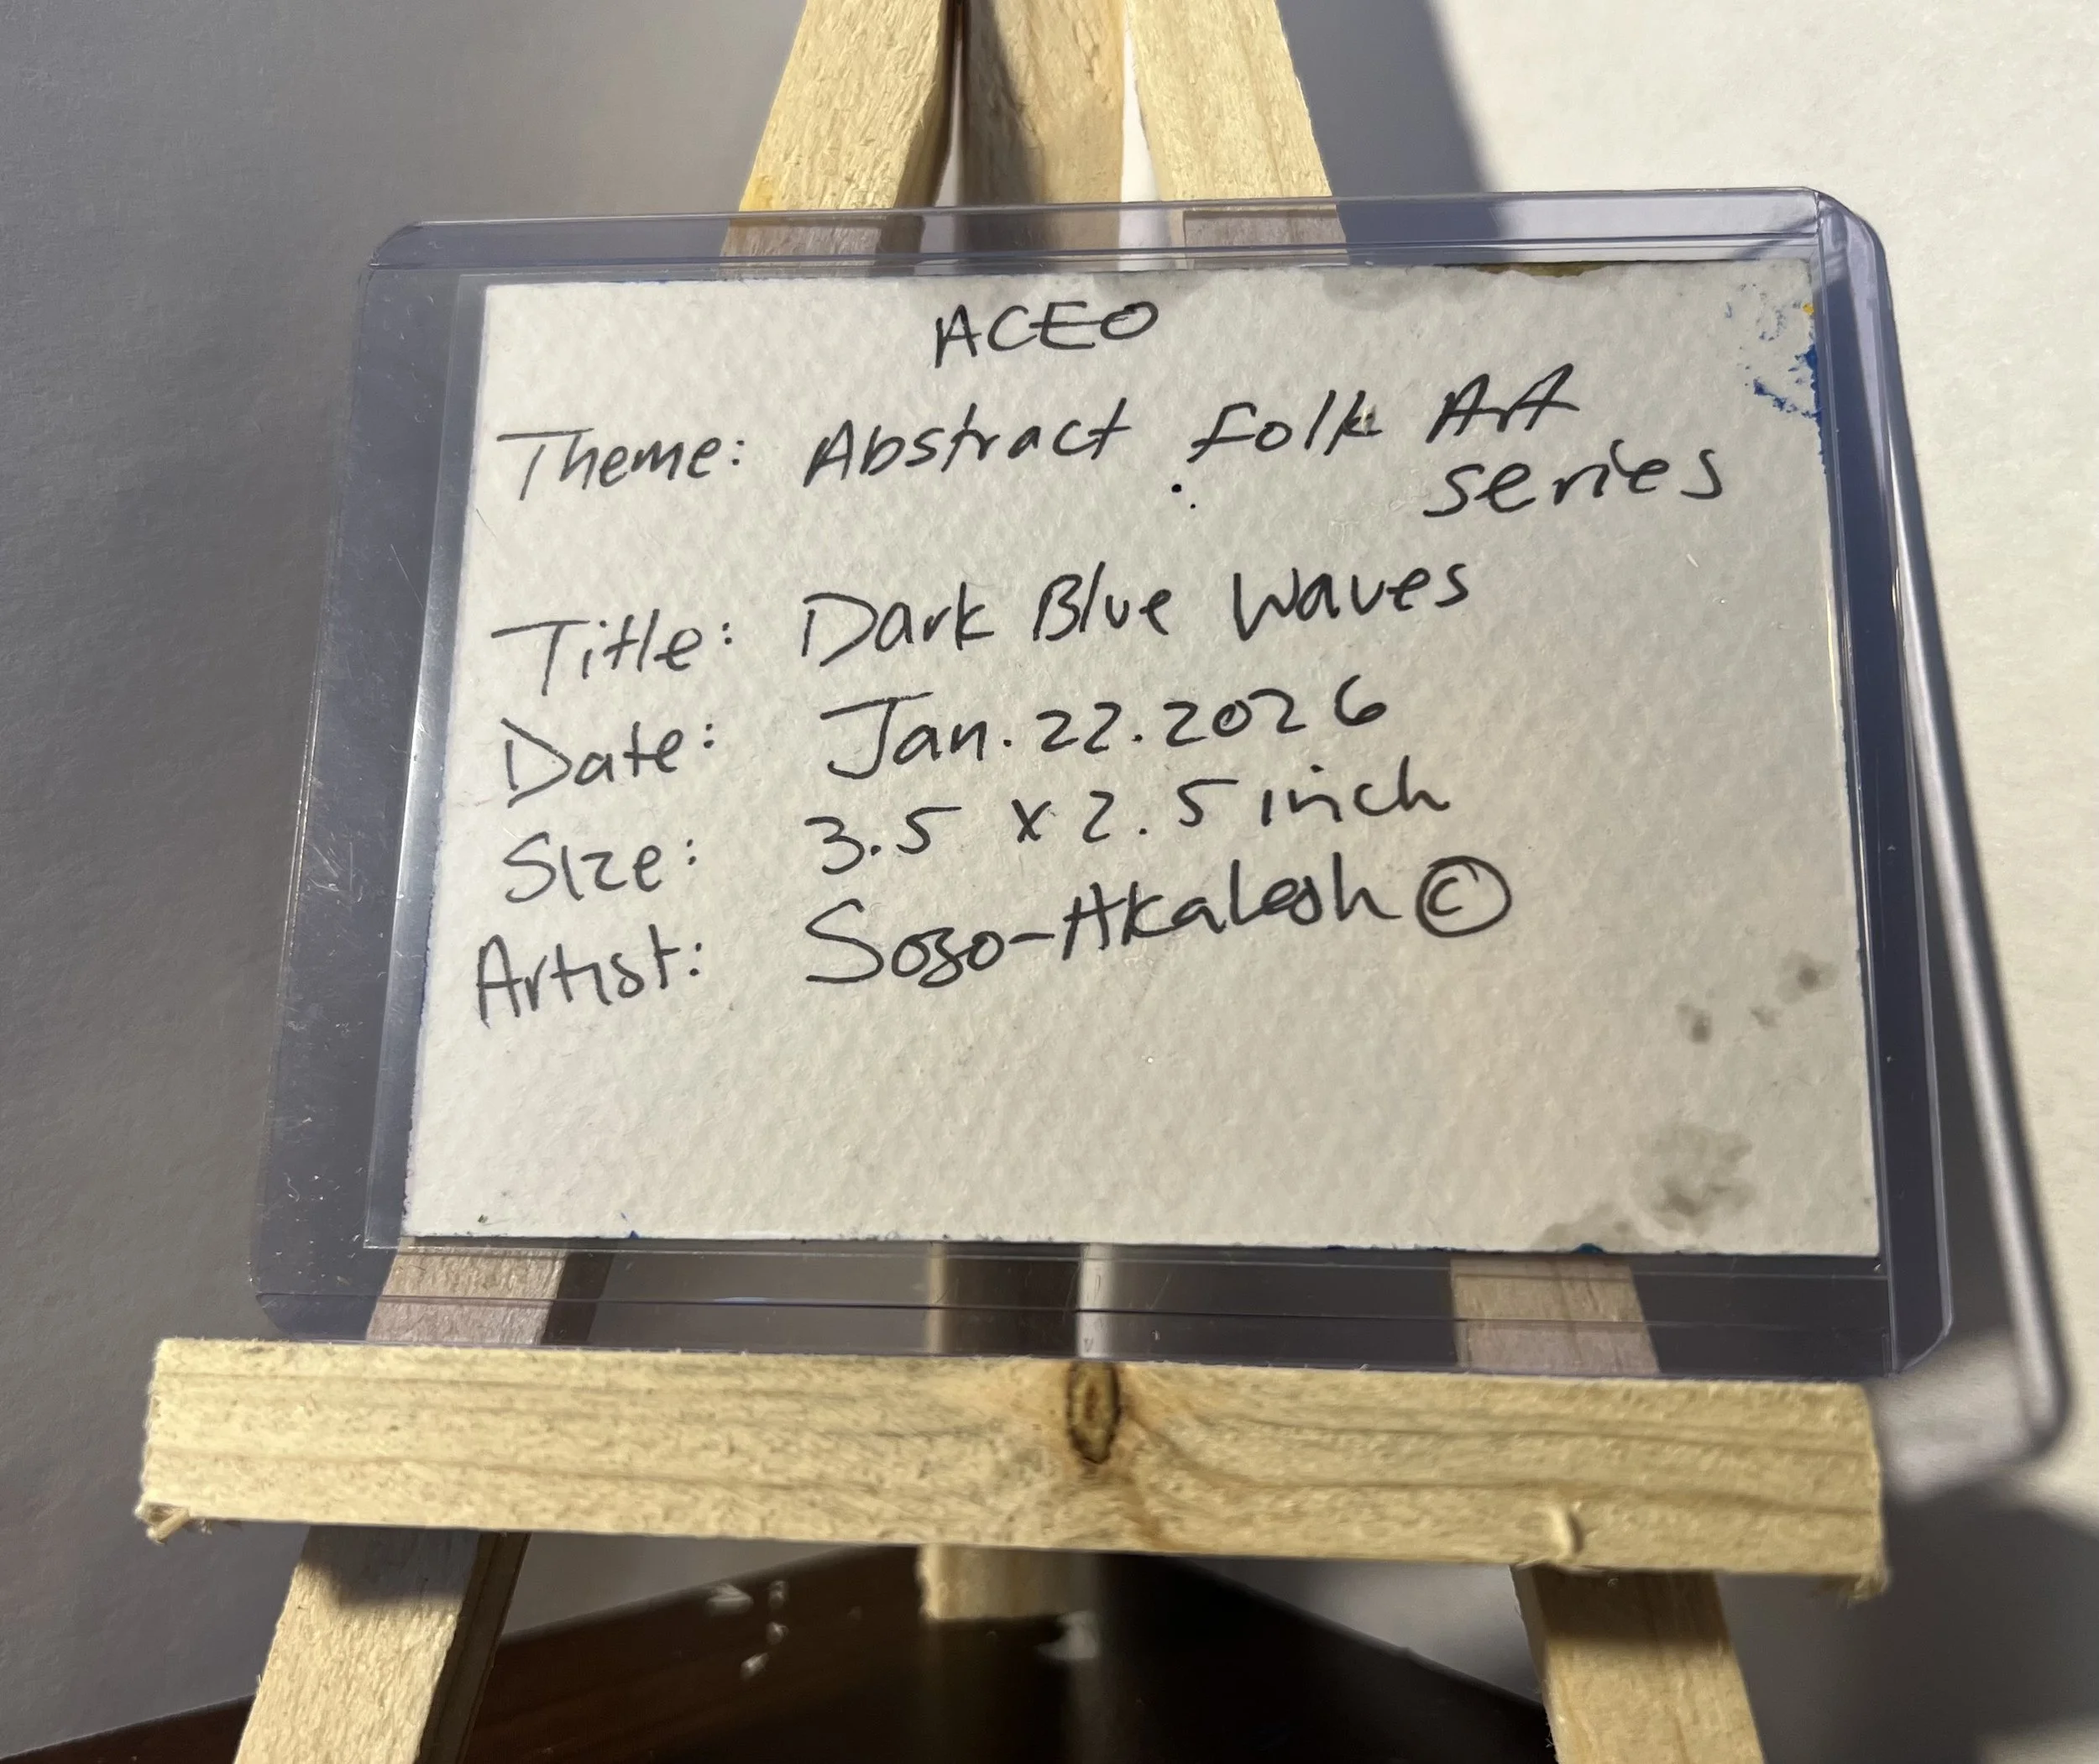 ACEO
Theme: Abstract Folk Art
series
Title: Dark Blue Waves
Date: Jan. 22. 2026
Size: 3.5 x 2.5 inch
Artist: Sozo-Akalesh ©